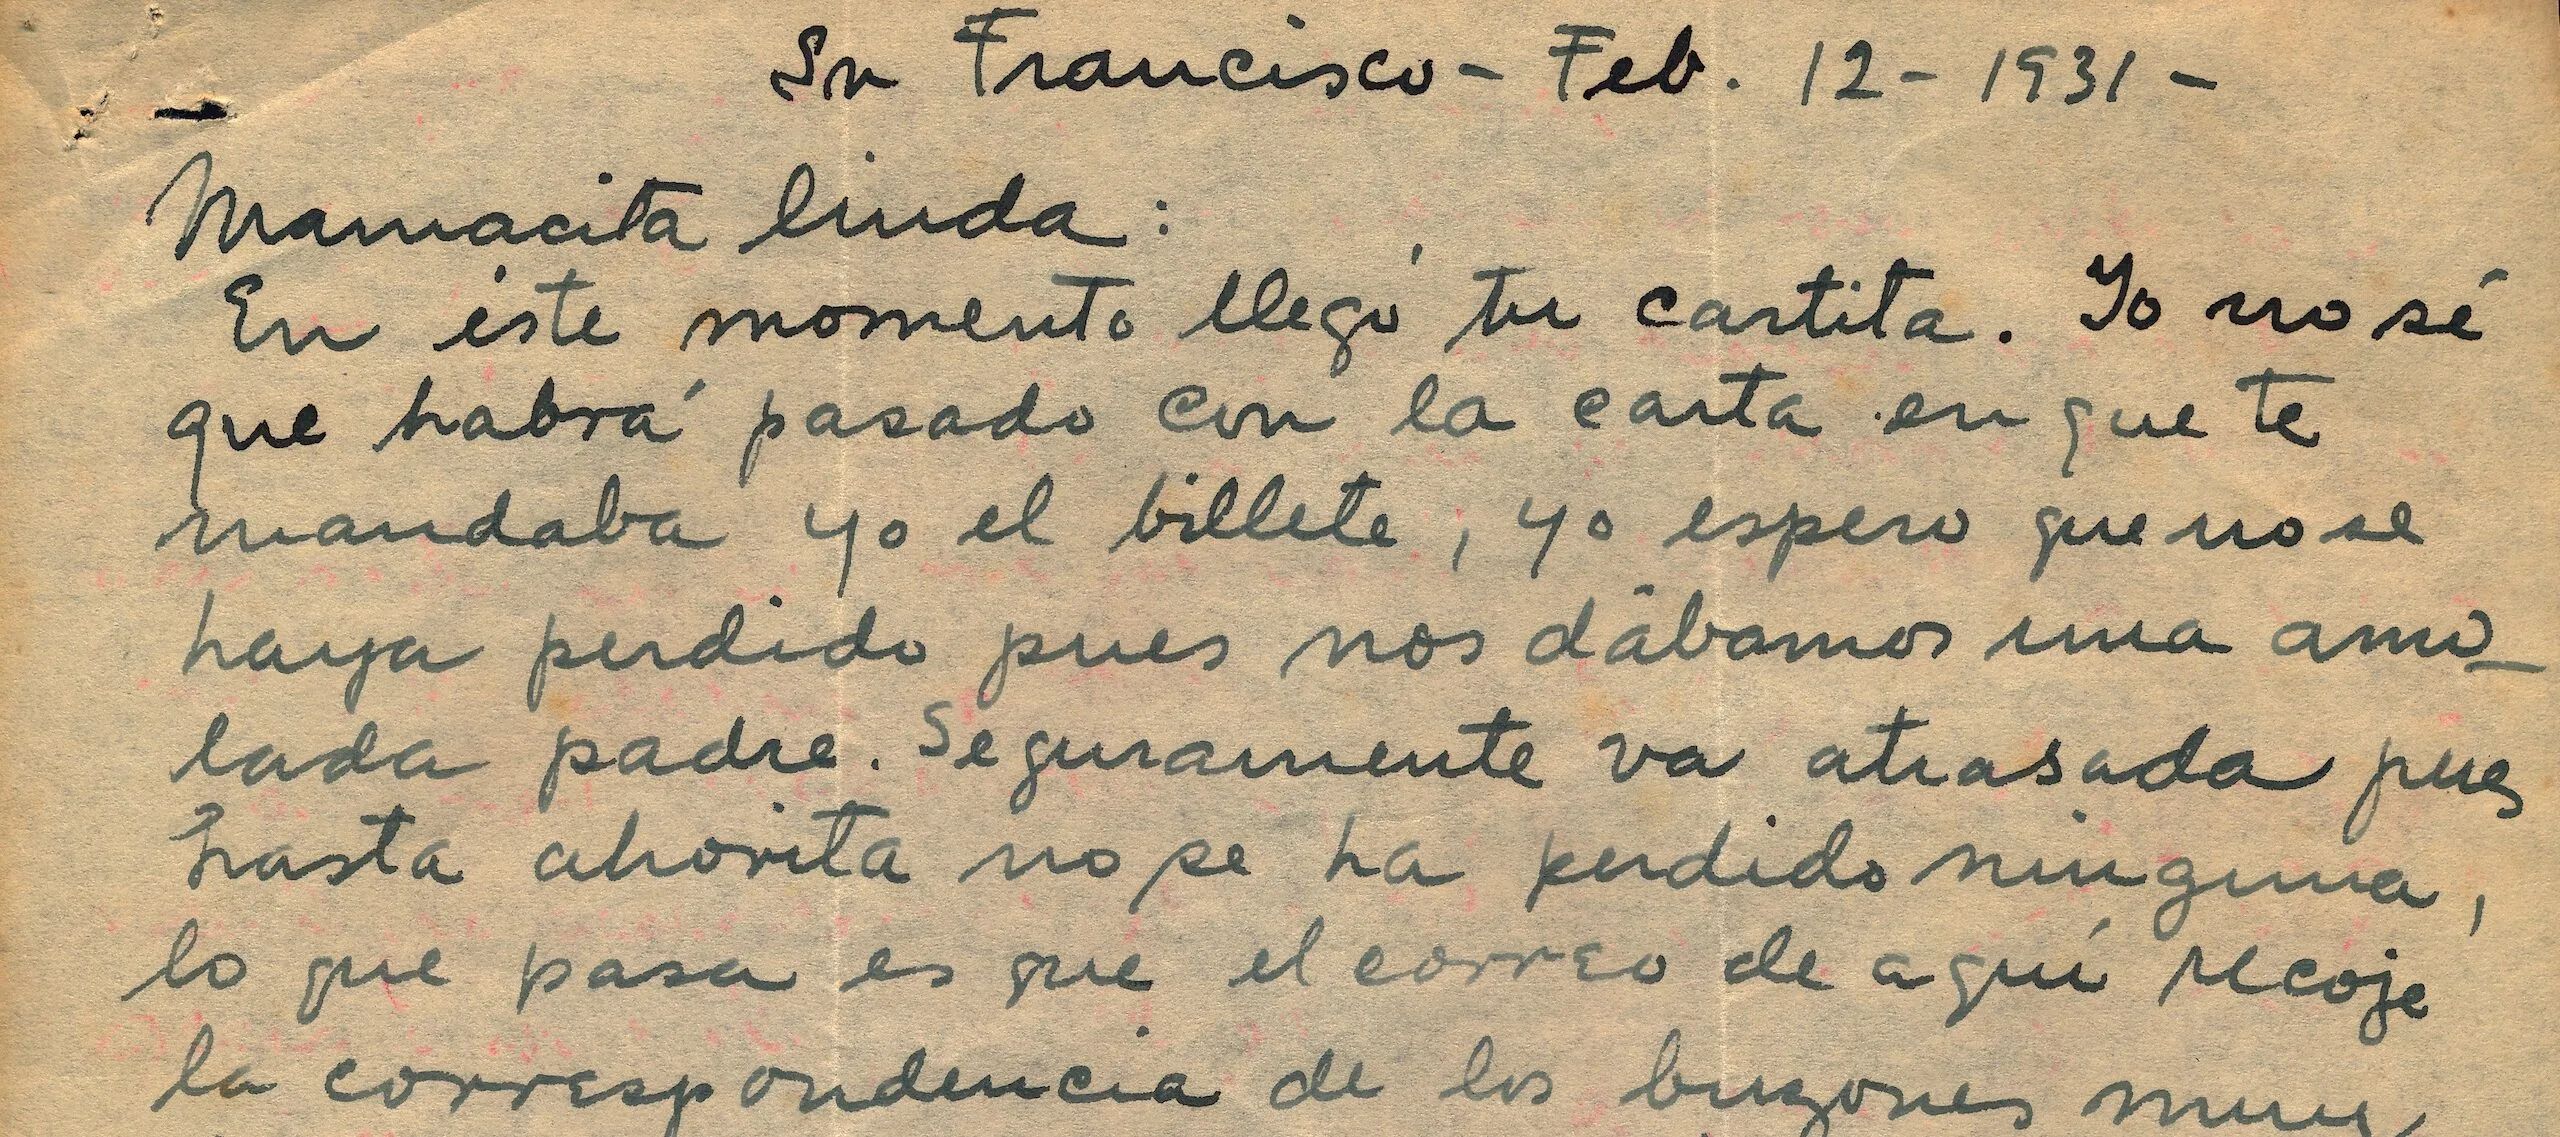 Sn Francisco - Feb. 12 - 1931 -
Mamacita linda :
En éste momento llegó tu cartita. Yo no sé
que habrá pasado con la carta en que te
mandaba yo el billete, yo espero que no se
haya perdido pues nos dábamos una amo-
lada padre. Seguramente va atrasada pues
hasta ahorita no se ha perdido ninguna,
lo que pasa es que el correo de aquí recoje
la correspondencia de los buzones muy